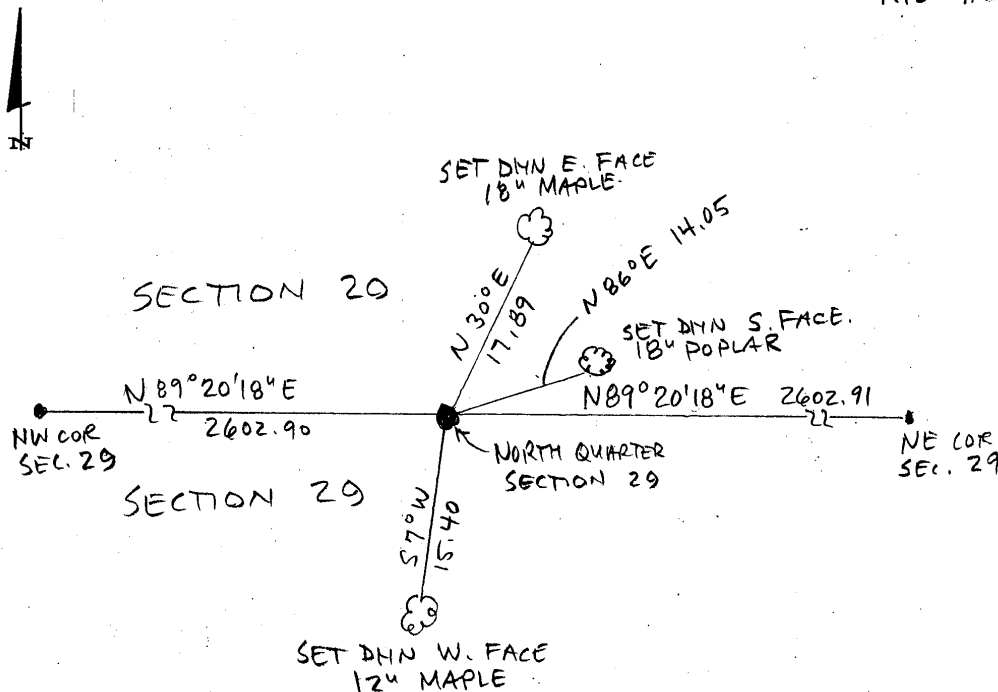 N
SET DMN E. FACE
18" MAPLE.
N 30° E
17.89
N 86° E 14.05
SECTION 20
SET DMN S. FACE.
18" POPLAR
N 89° 20' 18" E
2602.90
N89° 20' 18" E 2602.91
NW COR
SEC. 29
NORTH QUARTER
SECTION 29
NE COR
SEC. 29
SECTION 29
S 7° W
15.40
SET DMN W. FACE
12" MAPLE